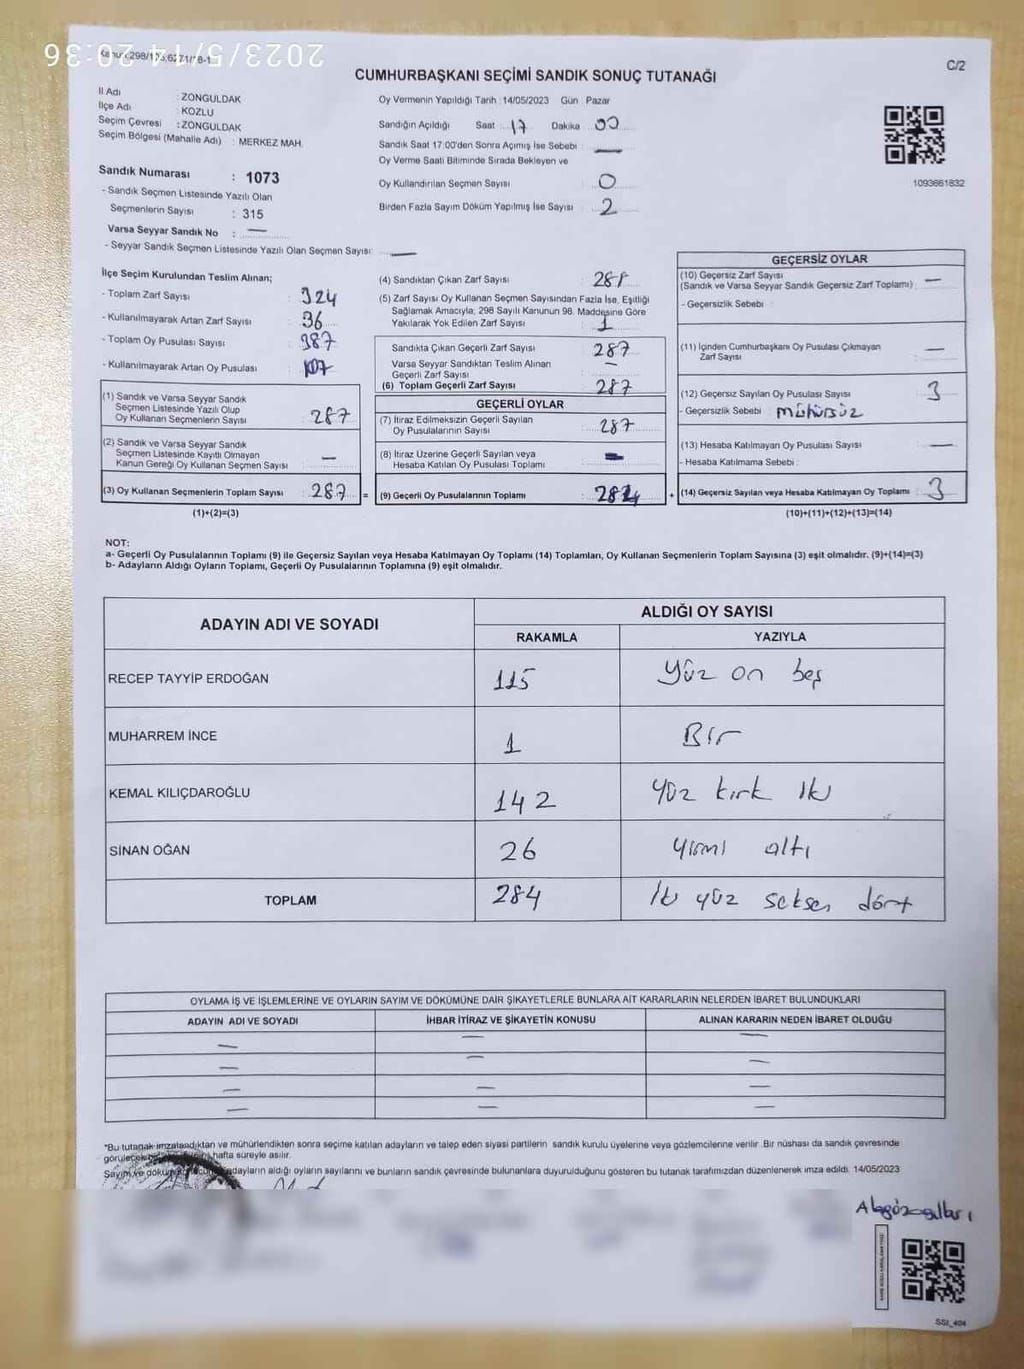 2023/5/14 20:36
C/2
CUMHURBAŞKANI SEÇİMİ SANDIK SONUÇ TUTANAĞI
İl Adı : ZONGULDAK
İlçe Adı : KOZLU
Seçim Çevresi : ZONGULDAK
Seçim Bölgesi (Mahalle Adı) : MERKEZ MAH.
Sandık Numarası : 1073
- Sandık Seçmen Listesinde Yazılı Olan
Seçmenlerin Sayısı : 315
Varsa Seyyar Sandık No : —
- Seyyar Sandık Seçmen Listesinde Yazılı Olan Seçmen Sayısı: —
Oy Vermenin Yapıldığı Tarih : 14/05/2023 Gün : Pazar
Sandığın Açıldığı Saat : 17 Dakika : 00
Sandık Saat 17:00'den Sonra Açımış İse Sebebi : —
Oy Verme Saati Bitiminde Sırada Bekleyen ve
Oy Kullandırılan Seçmen Sayısı : 0
Birden Fazla Sayım Döküm Yapılmış İse Sayısı : 2
1093661832
İlçe Seçim Kurulundan Teslim Alınan;
- Toplam Zarf Sayısı : 324
- Kullanılmayarak Artan Zarf Sayısı : 36
- Toplam Oy Pusulası Sayısı : 387
- Kullanılmayarak Artan Oy Pusulası :
(1) Sandık ve Varsa Seyyar Sandık
Seçmen Listesinde Yazılı Olup
Oy Kullanan Seçmenlerin Sayısı : 287
(2) Sandık ve Varsa Seyyar Sandık
Seçmen Listesinde Kayıtlı Olmayan
Kanun Gereği Oy Kullanan Seçmen Sayısı : —
(3) Oy Kullanan Seçmenlerin Toplam Sayısı : 287 =
(1)+(2)=(3)
(4) Sandıktan Çıkan Zarf Sayısı : 288
(5) Zarf Sayısı Oy Kullanan Seçmen Sayısından Fazla İse, Eşitliği
Sağlamak Amacıyla, 298 Sayılı Kanunun 98. Maddesine Göre
Yakılarak Yok Edilen Zarf Sayısı : 1
Sandıkta Çıkan Geçerli Zarf Sayısı : 287
Varsa Seyyar Sandıktan Teslim Alınan
Geçerli Zarf Sayısı : —
(6) Toplam Geçerli Zarf Sayısı : 287
GEÇERLİ OYLAR
(7) İtiraz Edilmeksizin Geçerli Sayılan
Oy Pusulalarının Sayısı : 287
(8) İtiraz Üzerine Geçerli Sayılan veya
Hesaba Katılan Oy Pusulası Toplamı : —
(9) Geçerli Oy Pusulalarının Toplamı : 284 +
GEÇERSİZ OYLAR
(10) Geçersiz Zarf Sayısı
(Sandık ve Varsa Seyyar Sandık Geçersiz Zarf Toplamı) : —
- Geçersizlik Sebebi :
(11) İçinden Cumhurbaşkanı Oy Pusulası Çıkmayan
Zarf Sayısı : —
(12) Geçersiz Sayılan Oy Pusulası Sayısı : 3
- Geçersizlik Sebebi : mühürsüz
(13) Hesaba Katılmayan Oy Pusulası Sayısı : —
- Hesaba Katılmama Sebebi :
(14) Geçersiz Sayılan veya Hesaba Katılmayan Oy Toplamı : 3
(10)+(11)+(12)+(13)=(14)
NOT:
a- Geçerli Oy Pusulalarının Toplamı (9) ile Geçersiz Sayılan veya Hesaba Katılmayan Oy Toplamı (14) Toplamları, Oy Kullanan Seçmenlerin Toplam Sayısına (3) eşit olmalıdır. (9)+(14)=(3)
b- Adayların Aldığı Oyların Toplamı, Geçerli Oy Pusulalarının Toplamına (9) eşit olmalıdır.
ADAYIN ADI VE SOYADI ALDIĞI OY SAYISI
RAKAMLA YAZIYLA
RECEP TAYYİP ERDOĞAN 115 yüz on beş
MUHARREM İNCE 1 Bir
KEMAL KILIÇDAROĞLU 142 yüz kırk iki
SİNAN OĞAN 26 yirmi altı
TOPLAM 284 iki yüz seksen dört
OYLAMA İŞ VE İŞLEMLERİNE VE OYLARIN SAYIM VE DÖKÜMÜNE DAİR ŞİKAYETLERLE BUNLARA AİT KARARLARIN NELERDEN İBARET BULUNDUKLARI
ADAYIN ADI VE SOYADI İHBAR İTİRAZ VE ŞİKAYETİN KONUSU ALINAN KARARIN NEDEN İBARET OLDUĞU
— — —
— — —
— — —
— — —
*Bu tutanak imzalandıktan ve mühürlendikten sonra seçime katılan adayların ve talep eden siyasi partilerin sandık kurulu üyelerine veya gözlemcilerine verilir. Bir nüshası da sandık çevresinde
görülecek hafta süreyle asılır.
Sayım ve döküm adayların aldığı oyların sayılarını ve bunların sandık çevresinde bulunanlara duyurulduğunu gösteren bu tutanak tarafımızdan düzenlenerek imza edildi. 14/05/2023
SSI_404